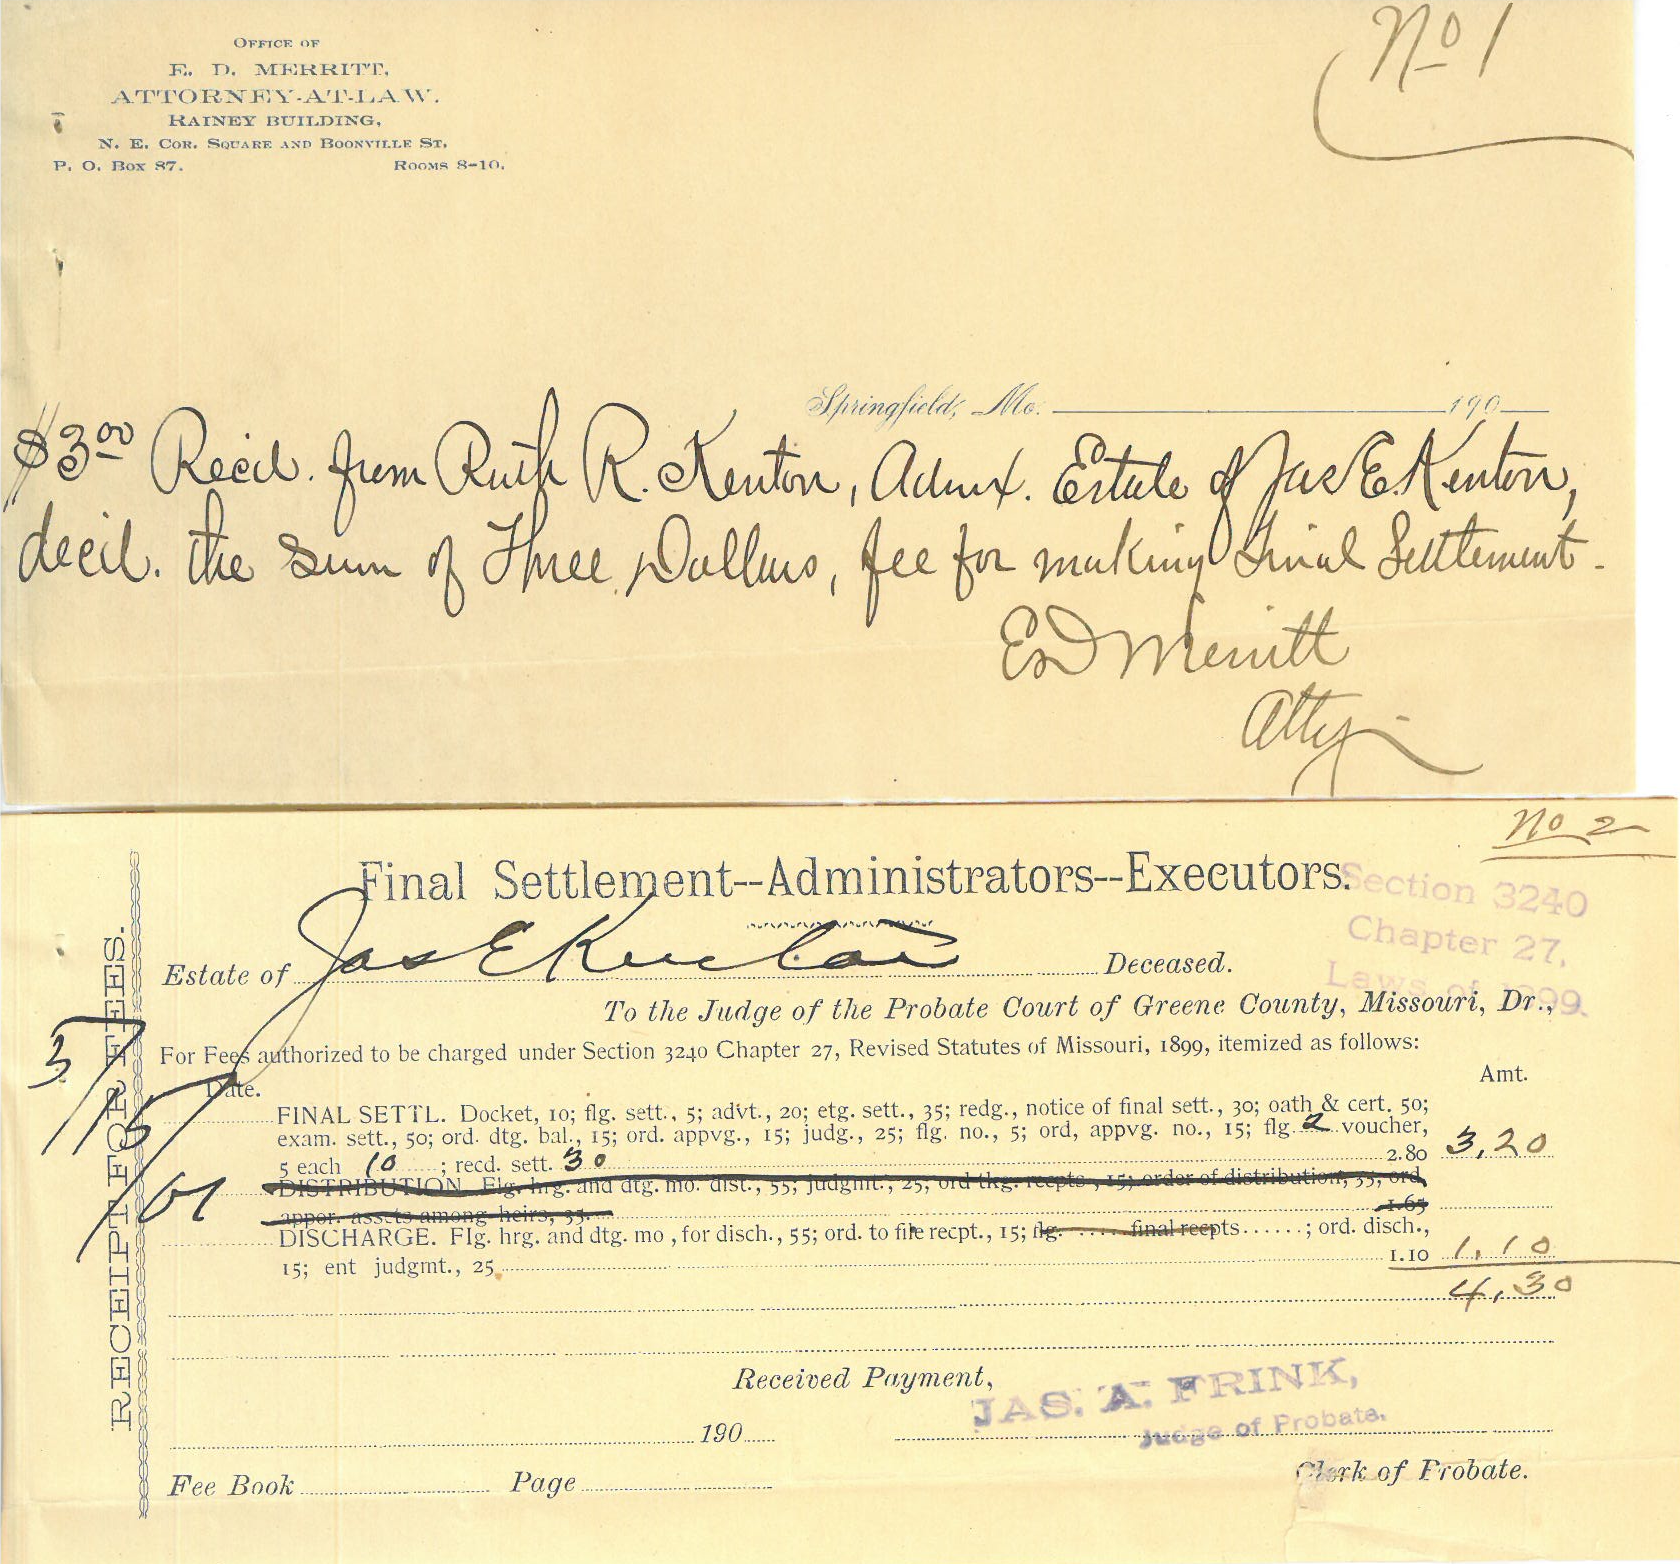 No 1
OFFICE OF
E. D. MERRITT,
ATTORNEY-AT-LAW.
RAINEY BUILDING,
N. E. COR. SQUARE AND BOONVILLE ST.
P. O. BOX 87. ROOMS 8-10.
Springfield, Mo. 190
$3.00 Recd. from Ruth R. Kenton, Admx. Estate of Jas E. Kenton,
decd. the sum of Three Dollars, fee for making Final Settlement.
E D Merritt
Atty
No 2
Final Settlement--Administrators--Executors.
Section 3240
Chapter 27,
Laws of 1899.
RECEIPT FOR FEES.
Estate of Jas E Kenton Deceased.
To the Judge of the Probate Court of Greene County, Missouri, Dr.,
For Fees authorized to be charged under Section 3240 Chapter 27, Revised Statutes of Missouri, 1899, itemized as follows:
Date. Amt.
3/15/01
FINAL SETTL. Docket, 10; flg. sett., 5; advt., 20; etg. sett., 35; redg., notice of final sett., 30; oath & cert. 50;
exam. sett., 50; ord. dtg. bal., 15; ord. appvg., 15; judg., 25; flg. no., 5; ord, appvg. no., 15; flg. 2 voucher,
5 each 10 ; recd. sett. 30 2.80 3,20
DISTRIBUTION. Flg. hrg. and dtg. mo. dist., 55; judgmt., 25; ord tkg. recpts., 15; order of distribution, 35; ord.
appor. assets among heirs, 35. 1.65
DISCHARGE. Flg. hrg. and dtg. mo , for disch., 55; ord. to file recpt., 15; flg. ..... final recpts ......; ord. disch.,
15; ent judgmt., 25 1.10 1,10
4,30
Received Payment,
JAS. A. FRINK,
Judge of Probate.
190
Clerk of Probate.
Fee Book Page